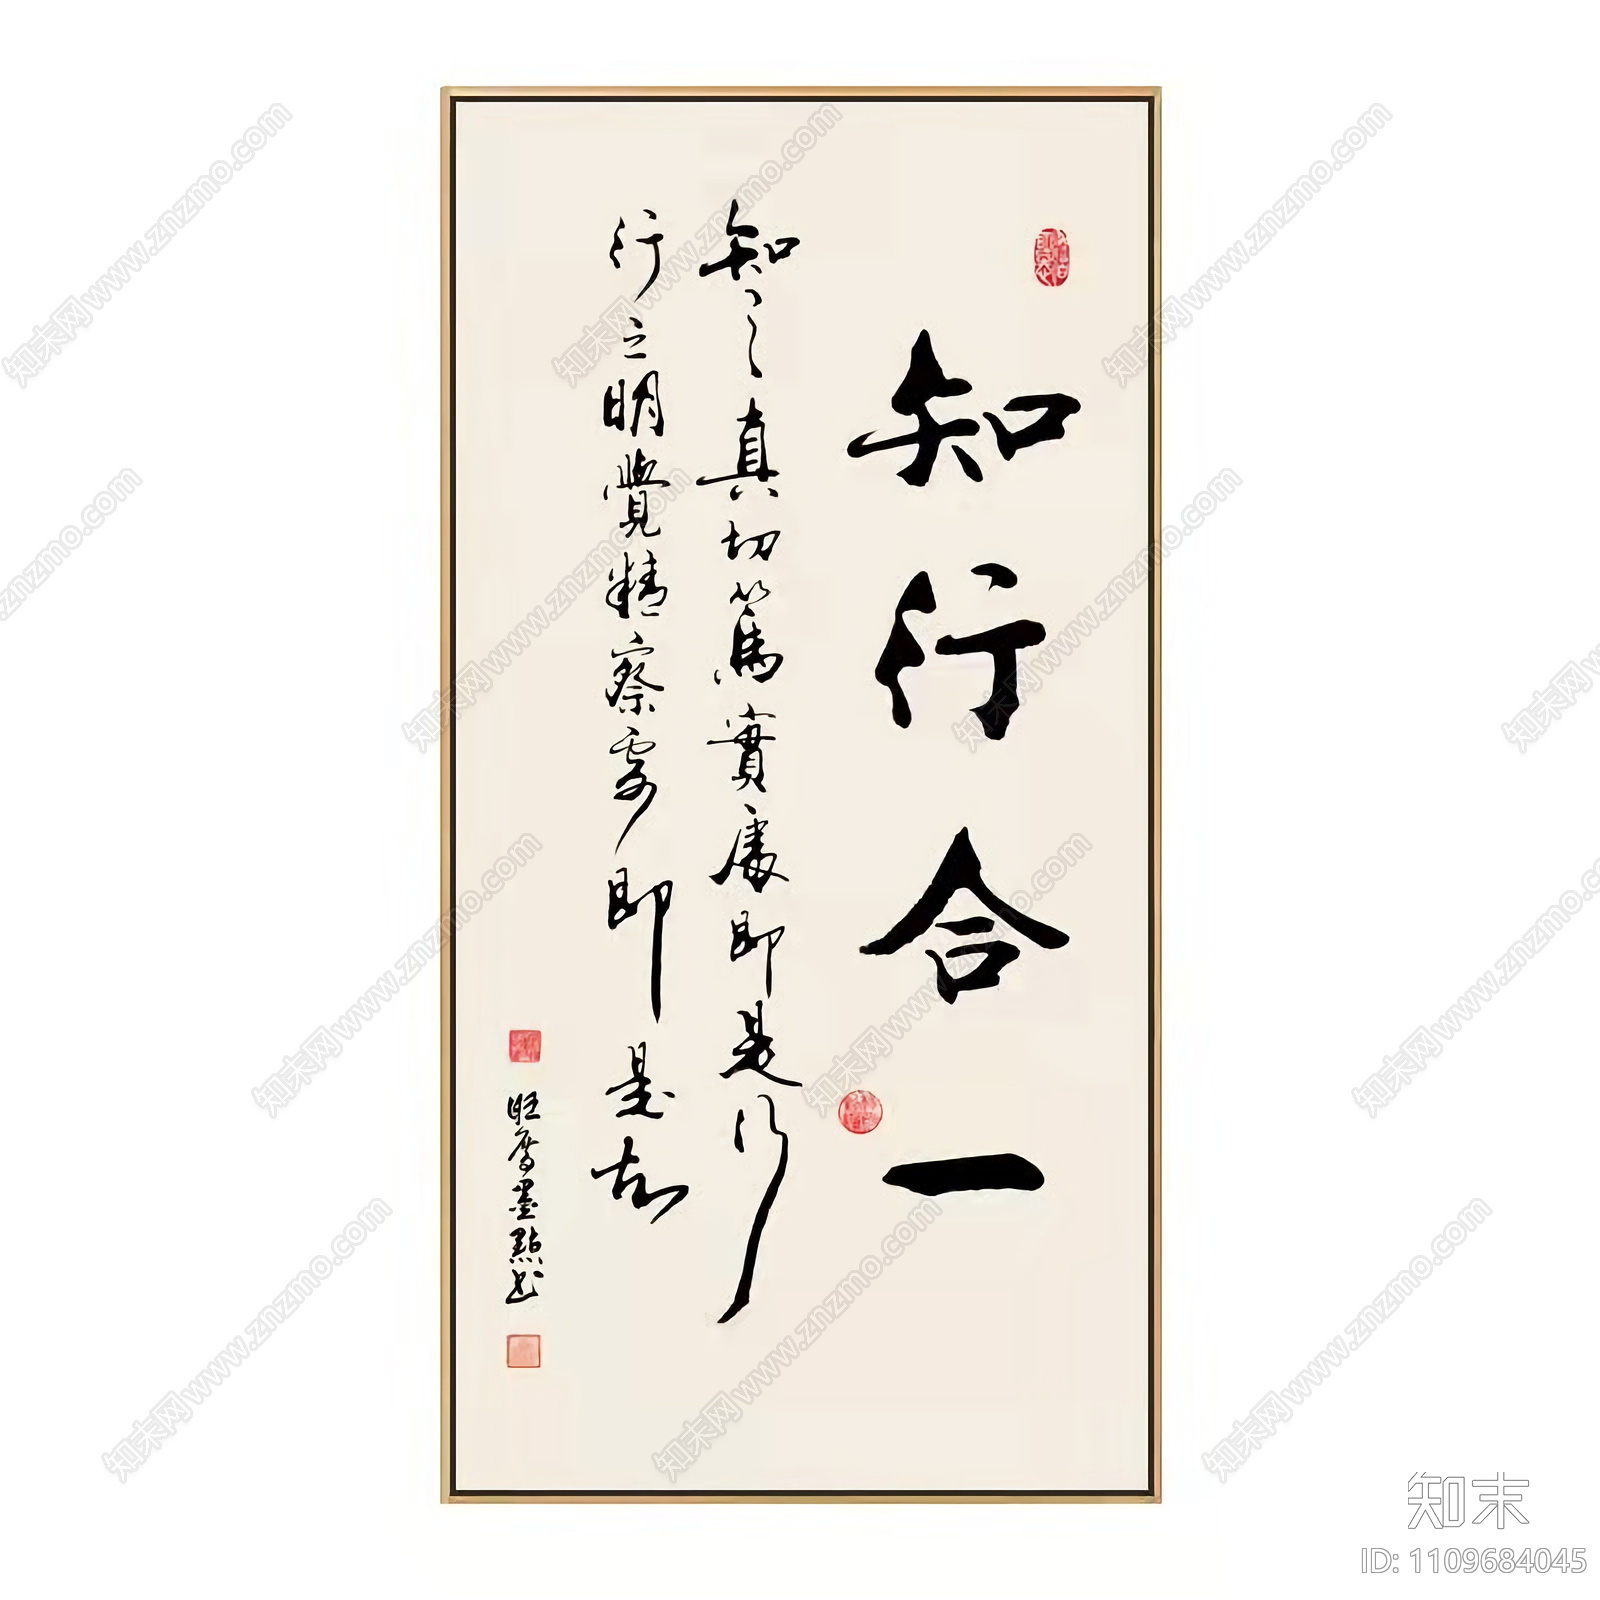 知行合一
知之真切篤實處即是行
行之明覺精察處即是知
知末
ID: 1109684045
知末网www.znzmo.com